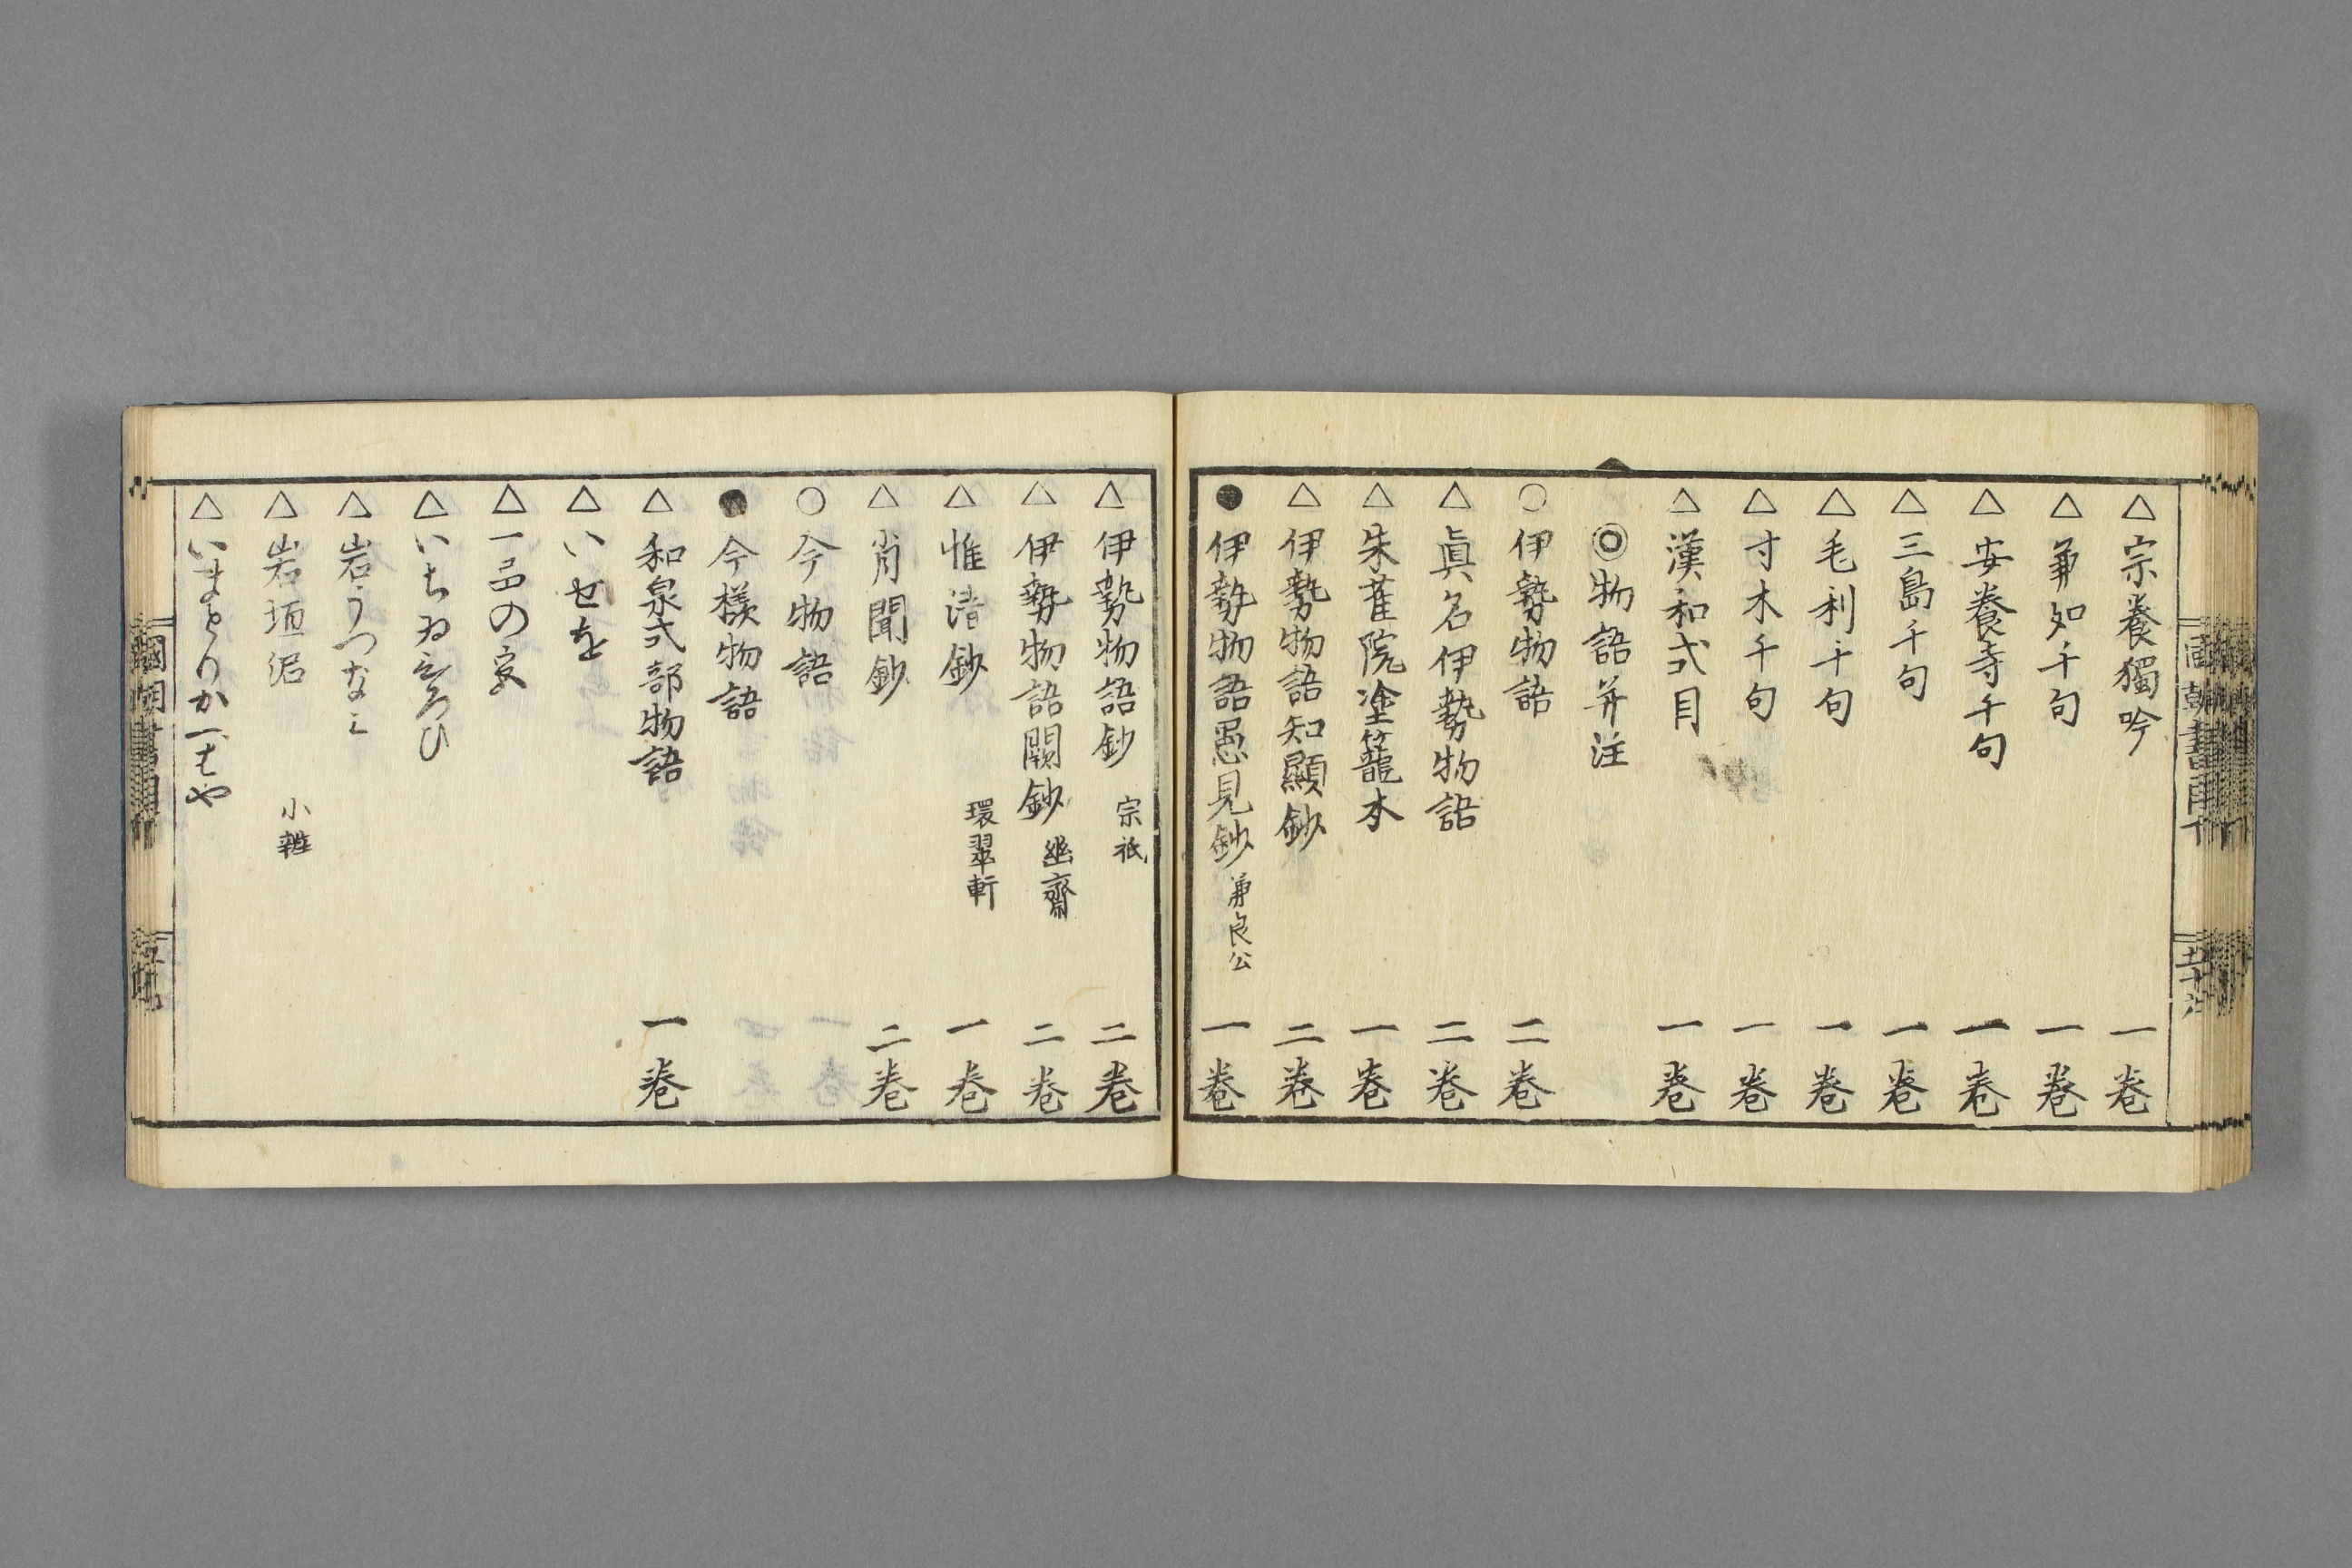 △宗養獨吟 一卷
△兼如千句 一卷
△安養寺千句 一卷
△三島千句 一卷
△毛利千句 一卷
△寸木千句 一卷
△漢和式目 一卷
◎物語并注
○伊勢物語 二卷
△眞名伊勢物語 二卷
△朱雀院塗籠本 一卷
△伊勢物語知顯鈔 二卷
●伊勢物語愚見鈔 兼良公 一卷
△伊勢物語鈔 宗祇 二卷
△伊勢物語闕鈔 幽齋 二卷
△惟清鈔 環翠軒 一卷
△肖聞鈔 二卷
○今物語
●今樣物語
△和泉式部物語 一卷
△いせを
△一品の宮
△いちゐひろひ
△岩うつなみ
△岩垣沼 小辨
△いまとりかへはや